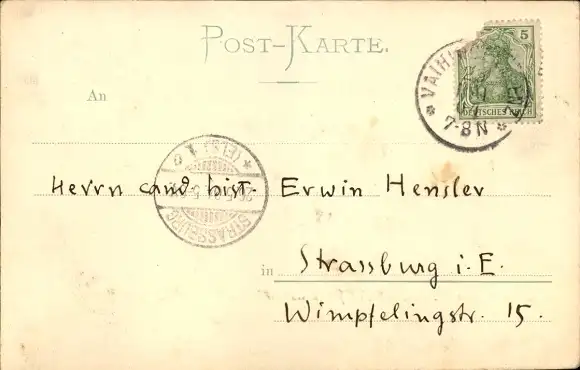 POST-KARTE.
5
DEUTSCHES REICH
7-8N
An
(ELS)
STRASSBURG
Herrn cand. hist. Erwin Hensler
in Strassburg i. E.
Wimpfelingstr. 15.